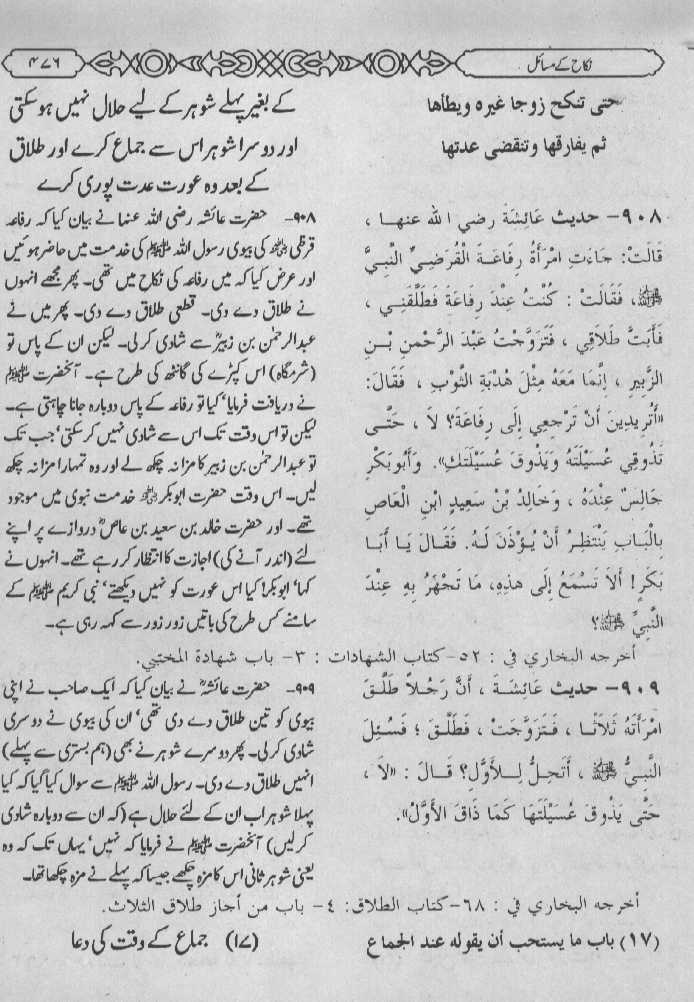 نکاح کے مسائل
۴۷۶
حتى تنكح زوجا غيره ويطأها
ثم يفارقها وتنقضى عدتها
کے بغیر پہلے شوہر کے لیے حلال نہیں ہو سکتی
اور دوسرا شوہر اس سے جماع کرے اور طلاق
کے بعد وہ عورت عدت پوری کرے
٩٠٨- حديث عَائِشَةَ رضي الله عنها ،
قَالَتْ: جَاءَتِ امْرَأَةُ رِفَاعَةَ الْقُرَضِيِّ النَّبِيَّ
ﷺ، فَقَالَتْ : كُنْتُ عِنْدَ رِفَاعَةَ فَطَلَّقَنِي ،
فَأَبَتَّ طَلَاقِي ، فَتَزَوَّجْتُ عَبْدَ الرَّحْمنِ بْنِ
الزَّبِيرِ ، إِنَّمَا مَعَهُ مِثْلُ هُدْبَةِ الثَّوْبِ ، فَقَالَ:
«أَتُرِيدِينَ أَنْ تَرْجِعِي إِلَى رِفَاعَةَ؟ لَا ، حَتَّى
تَذُوقِي عُسَيْلَتَهُ وَيَذُوقَ عُسَيْلَتَكِ». وَأَبُوبَكْرٍ
جَالِسٌ عِنْدَهُ ، وَخَالِدُ بْنُ سَعِيدِ ابْنِ الْعَاصِ
بِالْبَابِ يَنْتَظِرُ أَنْ يُؤْذَنَ لَهُ. فَقَالَ يَا أَبَا
بَكْرٍ! أَلَا تَسْمَعُ إِلَى هذِهِ، مَا تَجْهَرُ بِهِ عِنْدَ
النَّبِيِّ ﷺ؟
۹۰۸- حضرت عائشہ رضی اللہ عنہا نے بیان کیا کہ رفاعہ
قرظی رضی اللہ عنہ کی بیوی رسول اللہ ﷺ کی خدمت میں حاضر ہوئیں
اور عرض کیا کہ میں رفاعہ کی نکاح میں تھی۔ پھر مجھے انہوں
نے طلاق دے دی۔ قطعی طلاق دے دی۔ پھر میں نے
عبدالرحمٰن بن زبیرؓ سے شادی کر لی۔ لیکن ان کے پاس تو
(شرمگاہ) اس کپڑے کی گانٹھ کی طرح ہے۔ آنحضرت ﷺ
نے دریافت فرمایا‘ کیا تو رفاعہ کے پاس دوبارہ جانا چاہتی ہے۔
لیکن تو اس وقت تک اس سے شادی نہیں کر سکتی‘ جب تک
تو عبدالرحمٰن بن زبیر کا مزا نہ چکھ لے اور وہ تمہارا مزا نہ چکھ
لیں۔ اس وقت حضرت ابوبکر رضی اللہ عنہ خدمت نبوی میں موجود
تھے۔ اور حضرت خالد بن سعید بن عاصؓ دروازے پر اپنے
لئے (اندر آنے کی) اجازت کا انتظار کر رہے تھے۔ انہوں نے
کہا‘ ابوبکر! کیا اس عورت کو نہیں دیکھتے‘ نبی کریم ﷺ کے
سامنے کس طرح کی باتیں زور زور سے کہہ رہی ہے۔
أخرجه البخاري في : ٥٢-كتاب الشهادات : ٣- باب شهادة المختبي.
٩٠٩- حديث عَائِشَةَ ، أَنَّ رَجُلاً طَلَّقَ
امْرَأَتَهُ ثَلاَثًا ، فَتَزَوَّجَتْ ، فَطَلَّقَ ؛ فَسُئِلَ
النَّبِيُّ ﷺ ، أَتَحِلُّ لِلأَوَّلِ؟ قَالَ : «لاَ ،
حَتَّى يَذُوقَ عُسَيْلَتَهَا كَمَا ذَاقَ الأَوَّلُ».
۹۰۹- حضرت عائشہؓ نے بیان کیا کہ ایک صاحب نے اپنی
بیوی کو تین طلاق دے دی تھی‘ ان کی بیوی نے دوسری
شادی کر لی۔ پھر دوسرے شوہر نے بھی (ہم بستری سے پہلے)
انہیں طلاق دے دی۔ رسول اللہ ﷺ سے سوال کیا گیا کہ کیا
پہلا شوہر اب ان کے لئے حلال ہے (کہ ان سے دوبارہ شادی
کرلیں) آنحضرت ﷺ نے فرمایا کہ نہیں‘ یہاں تک کہ وہ
یعنی شوہر ثانی اس کا مزہ چکھے جیسا کہ پہلے نے مزہ چکھا تھا۔
أخرجه البخاري في : ٦٨-كتاب الطلاق: ٤- باب من أجاز طلاق الثلاث.
(١٧) باب ما يستحب أن يقوله عند الجماع
(۱۷) جماع کے وقت کی دعا